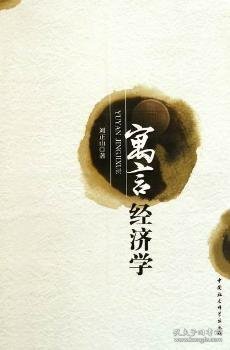 寓言
经济学
YUYAN JINGJIXUE
刘正山 著
中国社会科学出版社
孔夫子旧书网